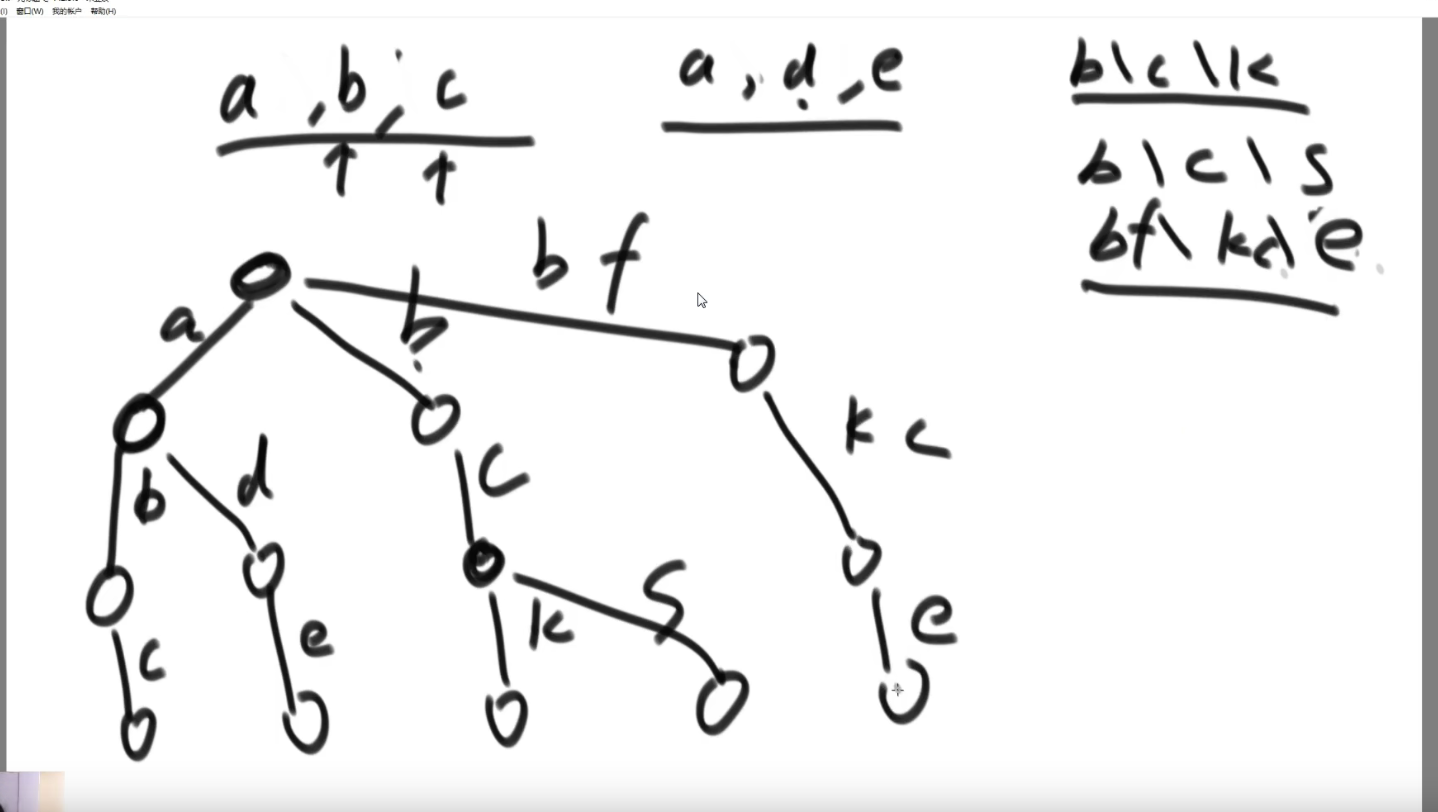 (I) 窗口(W) 我的帐户 帮助(H)
a , b , c
a , d , e
b\c\k
b\c\s
bf\kc\e
b f
a
b
k c
b
d
c
c
e
k
s
e